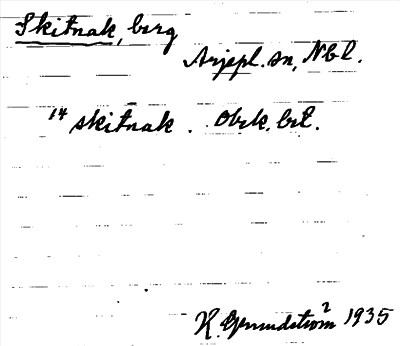 Skitnak, berg
Arjepl. sn, Nbl.
14 skitnak. Obek. bet.
K. Grundström 2 1935